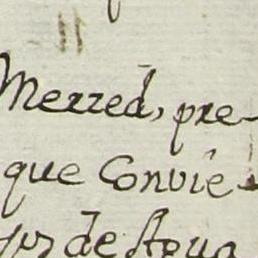 Merzed, pre-
que Convie-
de Agua